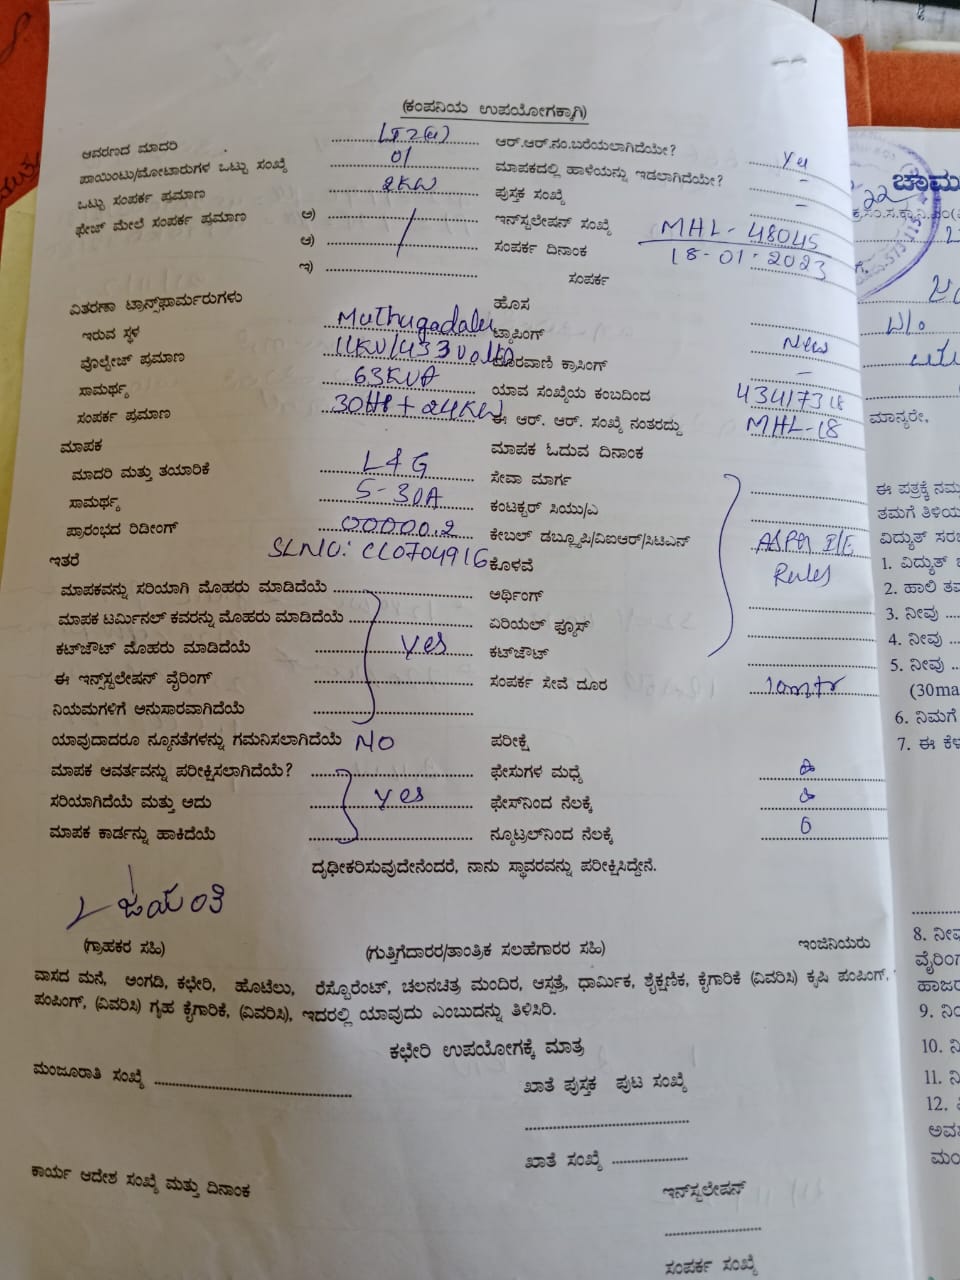 (ಕಂಪನಿಯ ಉಪಯೋಗಕ್ಕಾಗಿ)
ಆವರಣದ ಮಾದರಿ ಆರ್.ಆರ್.ನಂ.ಬರೆಯಲಾಗಿದೆಯೇ?
ಪಾಯಿಂಟು/ಮೋಟಾರುಗಳ ಒಟ್ಟು ಸಂಖ್ಯೆ 01 ಮಾಪಕದಲ್ಲಿ ಹಾಳೆಯನ್ನು ಇಡಲಾಗಿದೆಯೇ? Yes
ಒಟ್ಟು ಸಂಪರ್ಕ ಪ್ರಮಾಣ 2KW ಪುಸ್ತಕ ಸಂಖ್ಯೆ –
ಫೇಜ್ ಮೇಲೆ ಸಂಪರ್ಕ ಪ್ರಮಾಣ ಅ) ಇನ್‌ಸ್ಟಲೇಷನ್ ಸಂಖ್ಯೆ MHL - 48045
ಆ) ಸಂಪರ್ಕ ದಿನಾಂಕ 18-01-2023
ಇ) ಸಂಪರ್ಕ
ವಿತರಣಾ ಟ್ರಾನ್ಸ್‌ಫಾರ್ಮರುಗಳು ಹೊಸ
ಇರುವ ಸ್ಥಳ ಟ್ಯಾಪಿಂಗ್ New
ವೊಲ್ಟೇಜ್ ಪ್ರಮಾಣ 11KV/433 Volts ದೂರವಾಣಿ ಕ್ರಾಸಿಂಗ್ –
ಸಾಮರ್ಥ್ಯ 63KVA ಯಾವ ಸಂಖ್ಯೆಯ ಕಂಬದಿಂದ
ಸಂಪರ್ಕ ಪ್ರಮಾಣ 30HP + 24KW ಈ ಆರ್. ಆರ್. ಸಂಖ್ಯೆ ನಂತರದ್ದು MHL-18
ಮಾಪಕ ಮಾಪಕ ಓದುವ ದಿನಾಂಕ
ಮಾದರಿ ಮತ್ತು ತಯಾರಿಕೆ L&G ಸೇವಾ ಮಾರ್ಗ
ಸಾಮರ್ಥ್ಯ 5-30A ಕಂಟಕ್ಟರ್ ಸಿಯು/ಎ
ಪ್ರಾರಂಭದ ರಿಡೀಂಗ್ 00000.2 ಕೇಬಲ್ ಡಬ್ಲ್ಯೂಪಿ/ವಿಐಆರ್/ಸಿಟಿಎನ್ As Per I/E
ಇತರೆ SLNO: CL0704916 ಕೊಳವೆ Rules
ಮಾಪಕವನ್ನು ಸರಿಯಾಗಿ ಮೊಹರು ಮಾಡಿದೆಯೆ ಅರ್ಥಿಂಗ್
ಮಾಪಕ ಟರ್ಮಿನಲ್ ಕವರನ್ನು ಮೊಹರು ಮಾಡಿದೆಯೆ ಏರಿಯಲ್ ಫ್ಯೂಸ್
ಕಟ್‌ಔಟ್ ಮೊಹರು ಮಾಡಿದೆಯೆ Yes ಕಟ್‌ಔಟ್
ಈ ಇನ್ಸ್‌ಸ್ಟಲೇಷನ್ ವೈರಿಂಗ್ ಸಂಪರ್ಕ ಸೇವೆ ದೂರ 10mtr
ನಿಯಮಗಳಿಗೆ ಅನುಸಾರವಾಗಿದೆಯೆ
ಯಾವುದಾದರೂ ನ್ಯೂನತೆಗಳನ್ನು ಗಮನಿಸಲಾಗಿದೆಯೆ NO ಪರೀಕ್ಷೆ
ಮಾಪಕ ಆವರ್ತವನ್ನು ಪರೀಕ್ಷಿಸಲಾಗಿದೆಯೆ? ಫೇಸುಗಳ ಮಧ್ಯೆ
ಸರಿಯಾಗಿದೆಯೆ ಮತ್ತು ಅದು Yes ಫೇಸ್‌ನಿಂದ ನೆಲಕ್ಕೆ
ಮಾಪಕ ಕಾರ್ಡನ್ನು ಹಾಕಿದೆಯೆ ನ್ಯೂಟ್ರಲ್‌ನಿಂದ ನೆಲಕ್ಕೆ
ದೃಢೀಕರಿಸುವುದೇನೆಂದರೆ, ನಾನು ಸ್ಥಾವರವನ್ನು ಪರೀಕ್ಷಿಸಿದ್ದೇನೆ.
ಜಯಂತಿ
(ಗ್ರಾಹಕರ ಸಹಿ) (ಗುತ್ತಿಗೆದಾರರ/ತಾಂತ್ರಿಕ ಸಲಹೆಗಾರರ ಸಹಿ) ಇಂಜಿನಿಯರು
ವಾಸದ ಮನೆ, ಅಂಗಡಿ, ಕಛೇರಿ, ಹೊಟೆಲು, ರೆಸ್ಟೊರೆಂಟ್, ಚಲನಚಿತ್ರ ಮಂದಿರ, ಆಸ್ಪತ್ರೆ, ಧಾರ್ಮಿಕ, ಶೈಕ್ಷಣಿಕ, ಕೈಗಾರಿಕೆ (ವಿವರಿಸಿ) ಕೃಷಿ ಪಂಪಿಂಗ್,
ಪಂಪಿಂಗ್, (ವಿವರಿಸಿ) ಗೃಹ ಕೈಗಾರಿಕೆ, (ವಿವರಿಸಿ), ಇದರಲ್ಲಿ ಯಾವುದು ಎಂಬುದನ್ನು ತಿಳಿಸಿರಿ.
ಕಛೇರಿ ಉಪಯೋಗಕ್ಕೆ ಮಾತ್ರ
ಮಂಜೂರಾತಿ ಸಂಖ್ಯೆ ಖಾತೆ ಪುಸ್ತಕ ಪುಟ ಸಂಖ್ಯೆ
ಖಾತೆ ಸಂಖ್ಯೆ
ಕಾರ್ಯ ಆದೇಶ ಸಂಖ್ಯೆ ಮತ್ತು ದಿನಾಂಕ ಇನ್‌ಸ್ಟಲೇಷನ್
ಸಂಪರ್ಕ ಸಂಖ್ಯೆ
ಮಾನ್ಯರೇ,
ಈ ಪತ್ರಕ್ಕೆ
ವಿದ್ಯುತ್
1. ವಿದ್ಯುತ್
2. ಹಾಲಿ
3. ನೀವು
4. ನೀವು
5. ನೀವು
(30ma
6. ನಿಮಗೆ
7. ಈ
8.
9.
10.
11.
12.